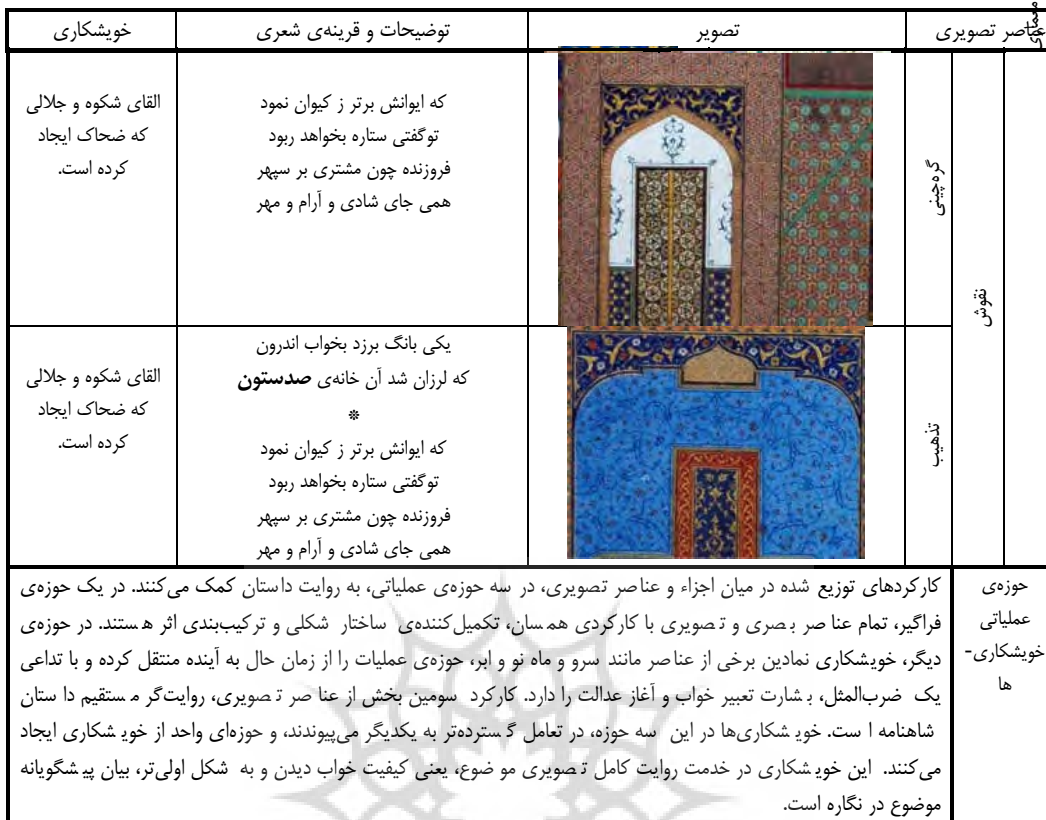 عناصر تصویری
تصویر
توضیحات و قرینه‌ی شعری
خویشکاری
معماری
نقوش
گره‌چینی
که ایوانش برتر ز کیوان نمود
توگفتی ستاره بخواهد ربود
فروزنده چون مشتری بر سپهر
همی جای شادی و آرام و مهر
القای شکوه و جلالی
که ضحاک ایجاد
کرده است.
تذهیب
یکی بانگ برزد بخواب اندرون
که لرزان شد آن خانه‌ی صدستون
*
که ایوانش برتر ز کیوان نمود
توگفتی ستاره بخواهد ربود
فروزنده چون مشتری بر سپهر
همی جای شادی و آرام و مهر
القای شکوه و جلالی
که ضحاک ایجاد
کرده است.
حوزه‌ی
عملیاتی
خویشکاری-
ها
کارکردهای توزیع شده در میان اجزاء و عناصر تصویری، در سه حوزه‌ی عملیاتی، به روایت داستان کمک می‌کنند. در یک حوزه‌ی
فراگیر، تمام عناصر بصری و تصویری با کارکردی همسان، تکمیل‌کننده‌ی ساختار شکلی و ترکیب‌بندی اثر هستند. در حوزه‌ی
دیگر، خویشکاری نمادین برخی از عناصر مانند سرو و ماه نو و ابر، حوزه‌ی عملیات را از زمان حال به آینده منتقل کرده و با تداعی
یک ضرب‌المثل، بشارت تعبیر خواب و آغاز عدالت را دارد. کارکرد سومین بخش از عناصر تصویری، روایت‌گر مستقیم داستان
شاهنامه است. خویشکاری‌ها در این سه حوزه، در تعامل گسترده‌تر به یکدیگر می‌پیوندند، و حوزه‌ای واحد از خویشکاری ایجاد
می‌کنند. این خویشکاری در خدمت روایت کامل تصویری موضوع، یعنی کیفیت خواب دیدن و به شکل اولی‌تر، بیان پیشگویانه
موضوع در نگاره است.